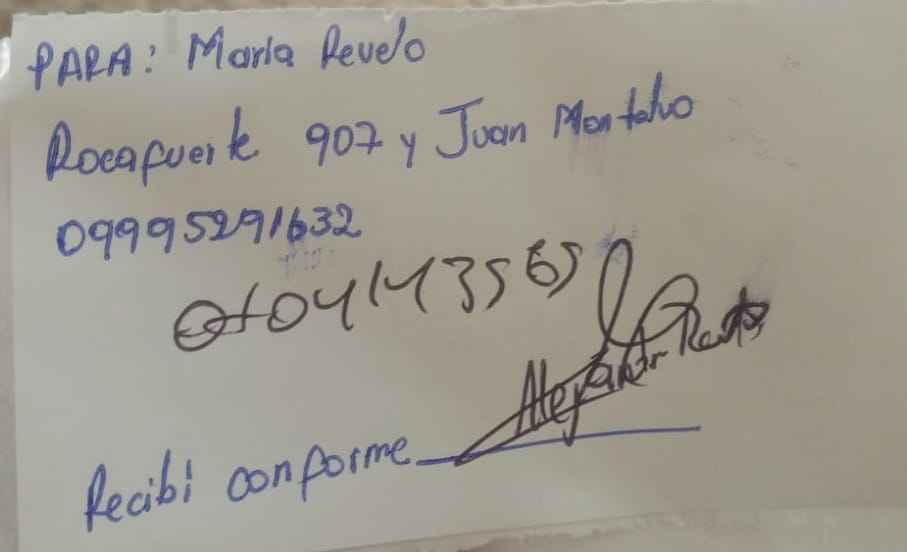 PARA: María Revelo
Rocafuerte 907 y Juan Montalvo
09995291632
0104143565
Alejandr
Recibi conforme